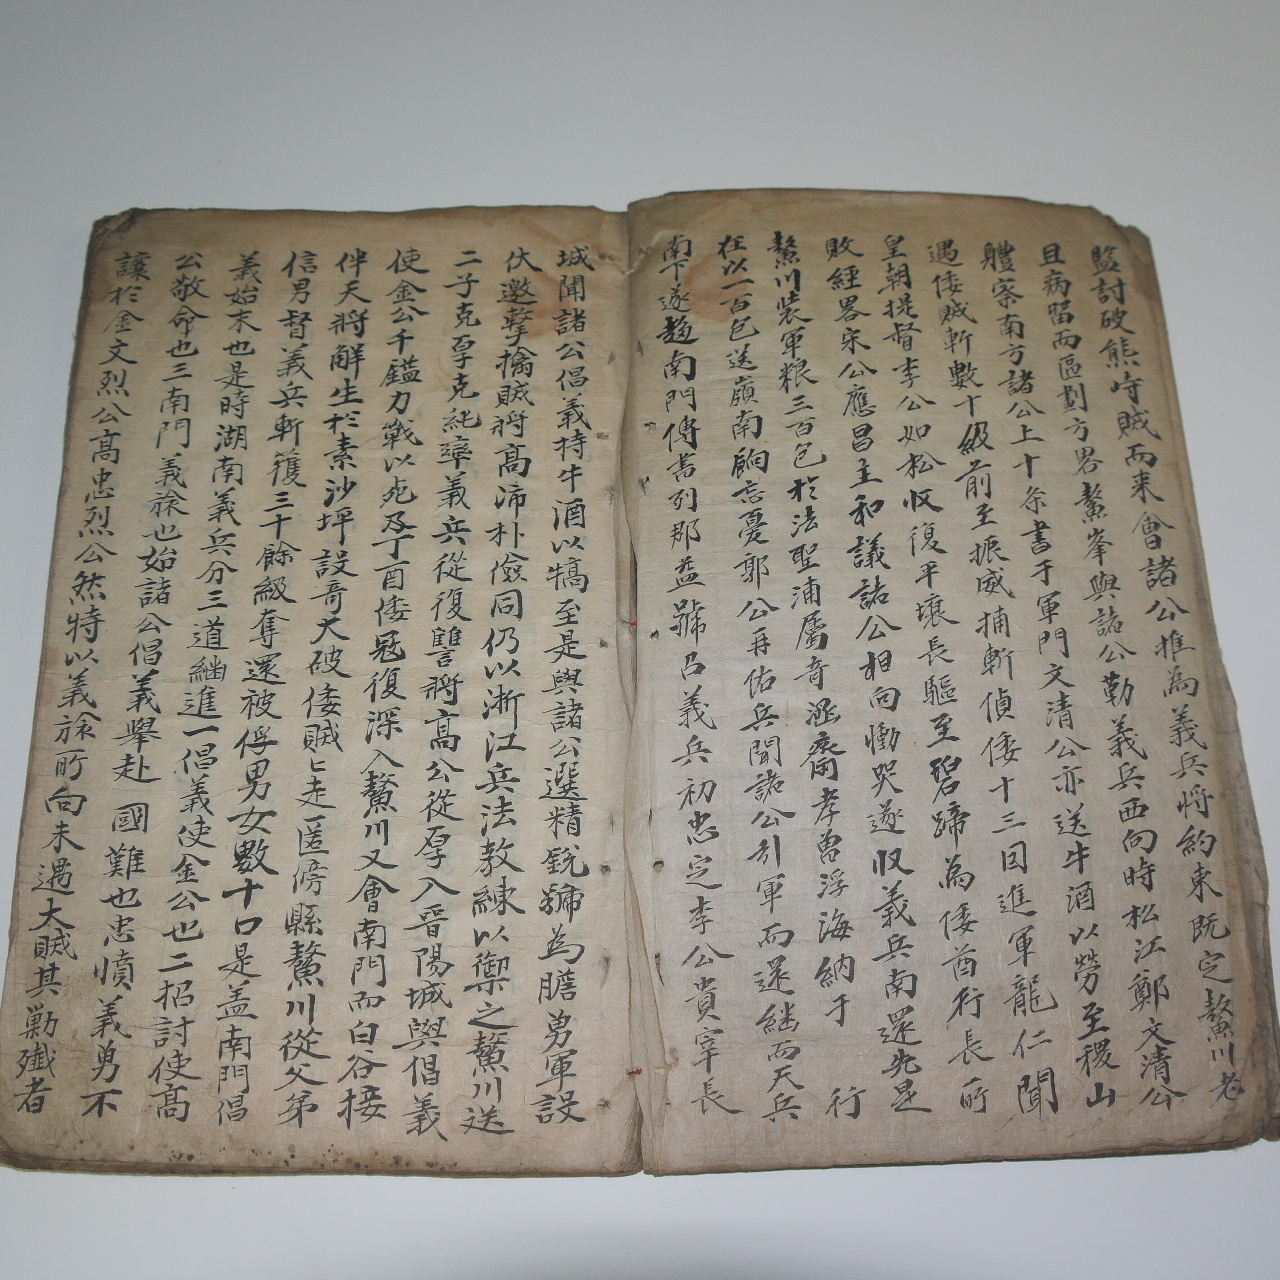 監討破熊峙賊而來會諸公推為義兵將約束既定鰲川老
且病留而區劃方畧鰲峯與諸公勒義兵西向時松江鄭文清公
軆察南方諸公上十条書于軍門文清公亦送牛酒以勞至稷山
遇倭賊斬數十級前至振威捕斬偵倭十三回進軍龍仁聞
皇朝提督李公如松收復平壤長驅至碧蹄為倭酋行長所
敗經畧宋公應昌主和議諸公相向慟哭遂收義兵南還先是
鰲川裝軍粮三百包於法聖浦屬竒遜齋孝曾浮海納于 行
在以一百包送嶺南餉忘憂郭公再佑兵聞諸公引軍而還継而天兵
南下遂趍南門傳書列郡益號召義兵初忠定李公貴宰長
城聞諸公倡義持牛酒以犒至是與諸公選精銳號為膽勇軍設
伏邀擊擒賊將高沛朴儉同仍以淅江兵法教練以禦之鰲川送
二子克厚克純率義兵從復讐將高公從厚入晋陽城與倡義
使金公千鎰力戰以死及丁酉倭冦復深入鰲川又會南門而白谷接
伴天將解生於素沙坪設竒大破倭賊〻走匿傍縣鰲川從父弟
信男督義兵斬獲三十餘級奪還被俘男女數十口是盖南門倡
義始末也是時湖南義兵分三道継進一倡義使金公也二招討使高
公敬命也三南門義旅也始諸公倡義擧赴 國難也忠憤義勇不
讓於金文烈公高忠烈公然特以義旅所向未遇大賊其勦殱者